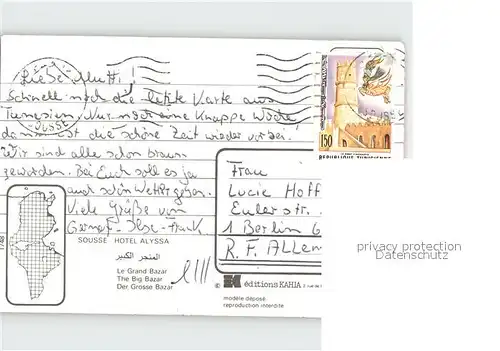 Liebe Mutti!
Schnell noch die letzte Karte aus
Tunesien. Nur noch eine knappe Woche,
dann ist die schöne Zeit wieder vorbei.
Wir sind alle schon braun
geworden. Bei Euch soll es ja
auch schön Wetter geben.
Viele Grüße von
Ilse - Frank
SOUSSE HOTEL ALYSSA
المتجر الكبير
Le Grand Bazar
The Big Bazar
Der Grosse Bazar
1748
150
REPUBLIQUE TUNISIENNE
Frau
Lucie Hoff
Eulerstr.
1 Berlin 6
R. F. ALLEM
© éditions KAHIA
modèle déposé
reproduction interdite
privacy protection
Datenschutz